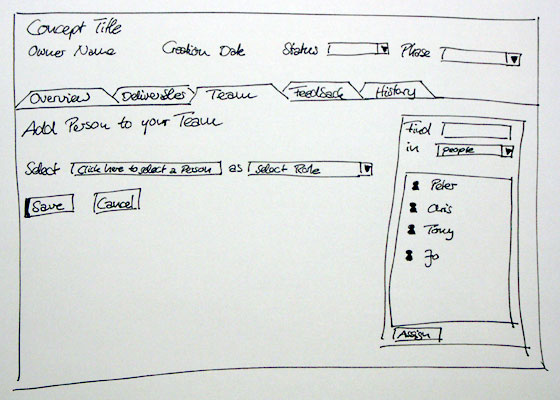 Concept Title
Owner Name Creation Date Status Phase
Overview Deliverables Team Feedback History
Add Person to your Team
Select Click here to select a Person as Select Role
Save Cancel
Find
in people
Peter
Chris
Tony
Jo
Assign